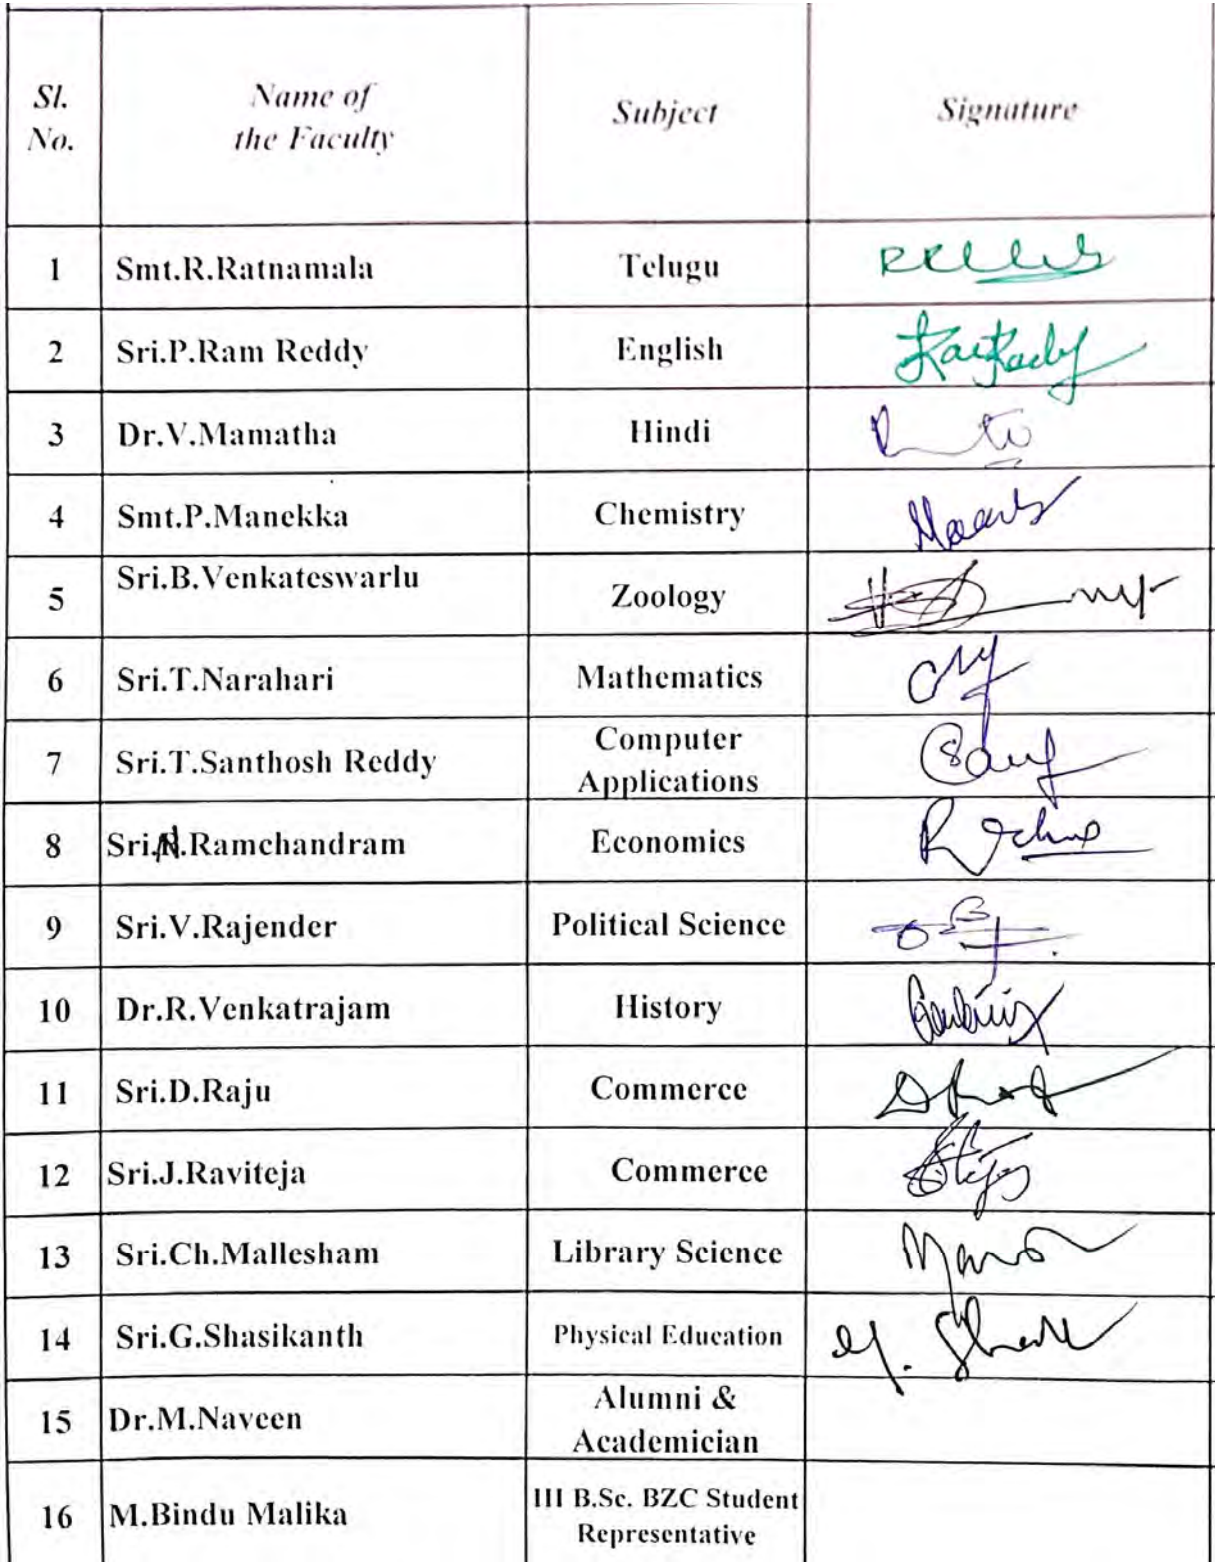 Sl. No. Name of the Faculty Subject Signature
1 Smt.R.Ratnamala Telugu
2 Sri.P.Ram Reddy English
3 Dr.V.Mamatha Hindi
4 Smt.P.Manekka Chemistry
5 Sri.B.Venkateswarlu Zoology
6 Sri.T.Narahari Mathematics
7 Sri.T.Santhosh Reddy Computer Applications
8 Sri.N.Ramchandram Economics
9 Sri.V.Rajender Political Science
10 Dr.R.Venkatrajam History
11 Sri.D.Raju Commerce
12 Sri.J.Raviteja Commerce
13 Sri.Ch.Mallesham Library Science
14 Sri.G.Shasikanth Physical Education
15 Dr.M.Naveen Alumni & Academician
16 M.Bindu Malika III B.Sc. BZC Student Representative